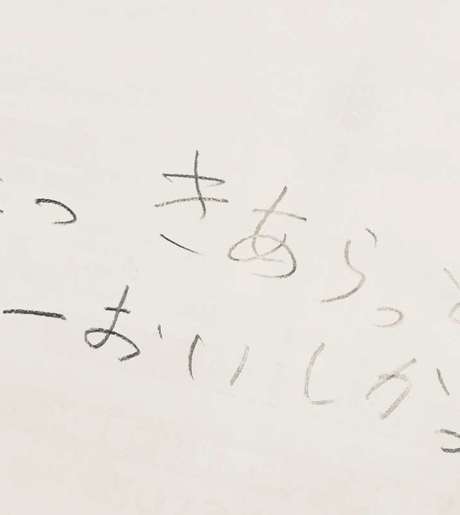 っ きあらっ
ーおいしか